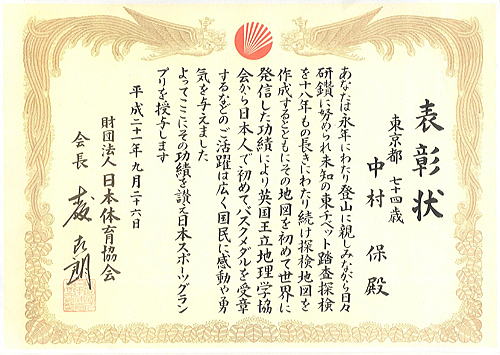 表彰状
東京都 七十四歳
中村 保殿
あなたは永年にわたり登山に親しみながら日々
研鑽に努められ未知の東チベット踏査探検
を十八年もの長きにわたり続け探検地図を
作成するとともにその地図を初めて世界に
発信した功績により英国王立地理学協
会から日本人で初めてバスクメダルを受章
するなどのご活躍は広く国民に感動や勇
気を与えました
よってここにその功績を讃え日本スポーツグラン
プリを授与します
平成二十一年九月二十六日
財団法人 日本体育協会
会長